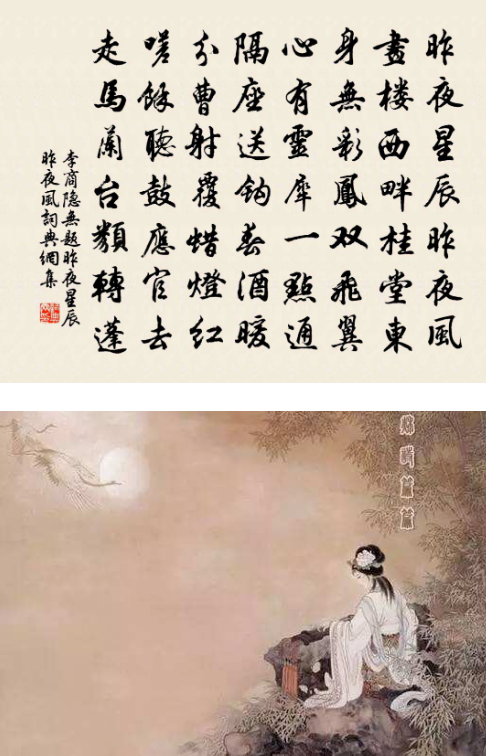 昨夜星辰昨夜風
畫楼西畔桂堂東
身無彩鳳双飛翼
心有靈犀一點通
隔座送鈎春酒暖
分曹射覆蜡燈紅
嗟餘聽鼓應官去
走馬蘭台類轉蓬
李商隐無题昨夜星辰
昨夜風詞典網集